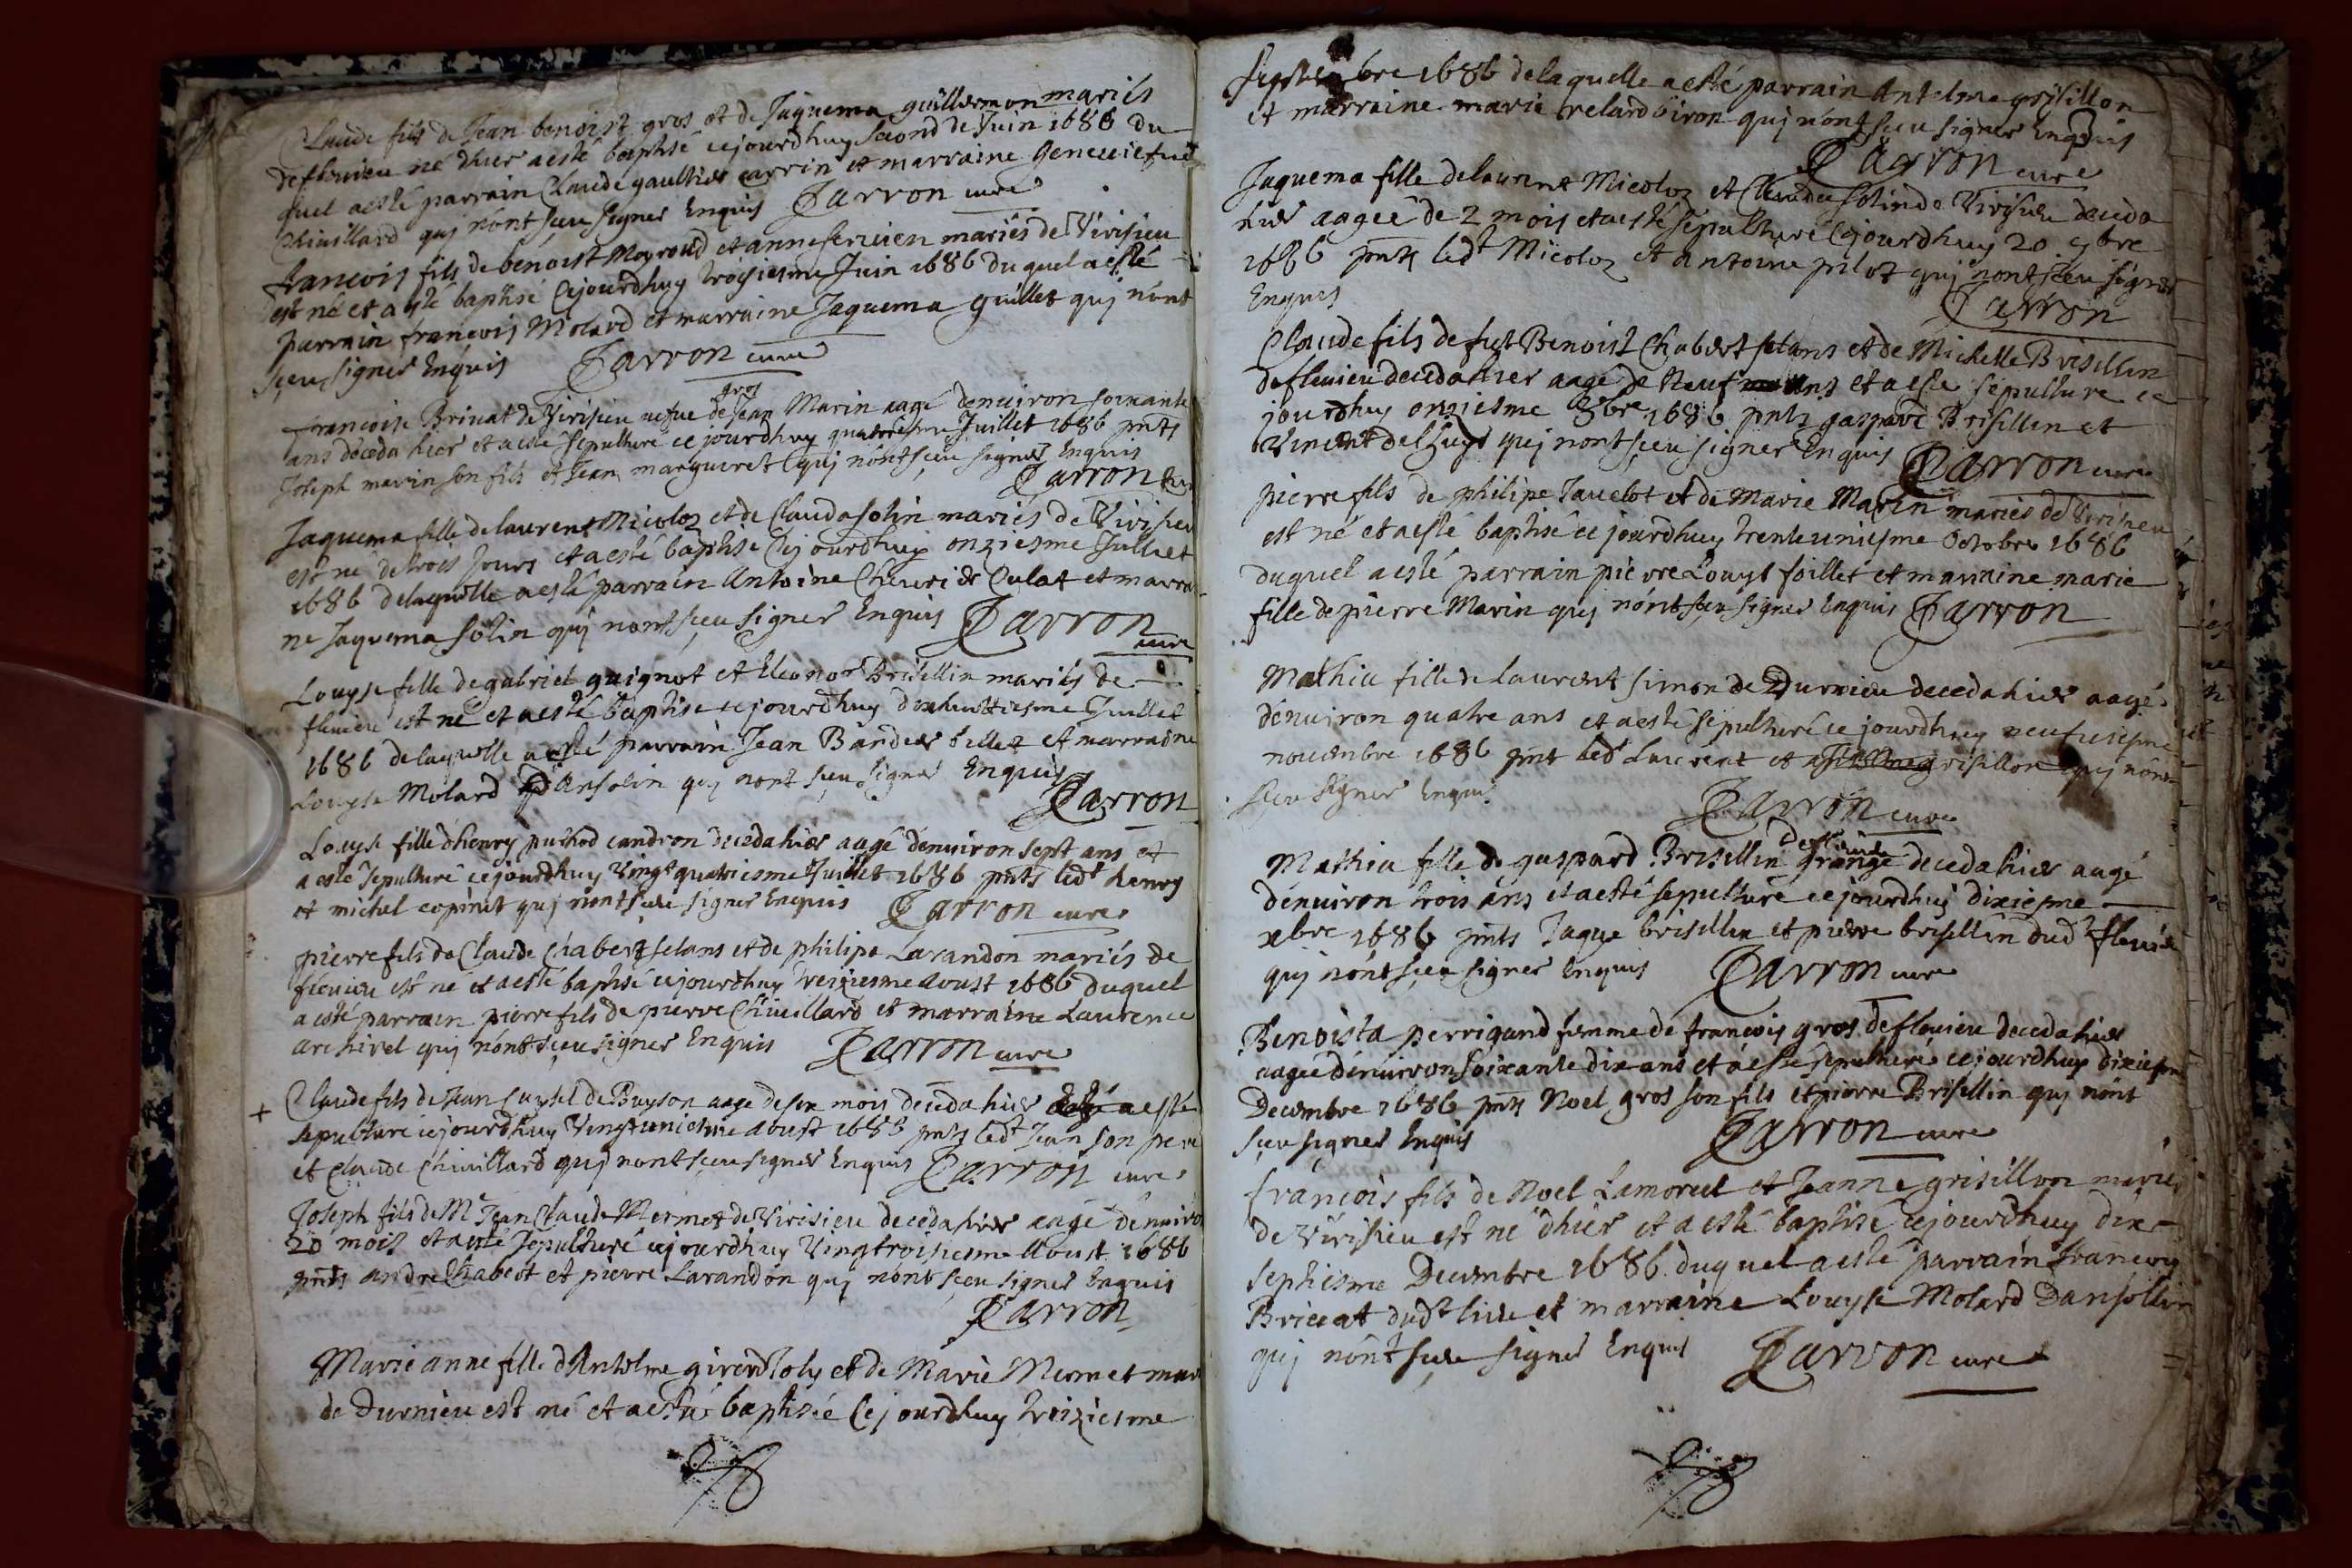 Claude fils de Jean benoist gros et de Jaquema guillermon mariés
de fleuieu né dhier aesté baptisé cejourdhuy second de Juin 1686 du
quel aesté parrain Claude gaultier carrin et marraine Geneuiefue
Chiuillard quj nont sceu signer Enquis Carron curé
francois fils de benoist Moyroud et anne seruien mariés de Virisieu
est né et a esté baptisé Cejourdhuy troisiesme Juin 1686 duquel a esté
parrain francois Molard et marraine Jaquema guillet quj nont
sceu signer Enquis Carron curé
gros
francoise Briuat de Virisieu vefue de Jean Marin aagé denuiron soixante
ans deceda hier et aesté sepulturé ce jourdhuy quatriesme Juillet 1686 pnts
Joseph marin son fils et Jean margueret quj nont sceu signer Enquis
Carron
Jaquema fille de laurent Micoloz et de Clauda solin mariés de Virisieu
est né de trois Jours et a esté baptisé Cejourdhuy onziesme Julliet
1686 delaquelle a esté parrain Antoine Cheurier Culat et marrai
ne Jaquema solin quj nont sceu signer Enquis Carron
curé
Louyse fille de gabriel guignot et Eleonor Brisellin mariés de
fleuieu est né et aesté baptisé ce jourdhuy dixhuittiesme Juillet
1686 delaquelle a esté parrain Jean Bandier billet et marraine
Louyse Molard Dansolin quj nont sceu signer Enquis
Carron
Louyse fille dhenry puthod candron deceda hier aagé denuiron sept ans et
a esté sepulturé cejourdhuy Vingt quatriesme Juillet 1686 pnts ledt henry
et michel copinet quj nont sceu signer Enquis Carron curé
pierre fils de Claude Chabert selans et de philipe Larandon mariés de
fleuieu est né et aesté baptisé cejourdhuy treiziesme Aoust 1686 duquel
a esté parrain pierre fils de pierre Chiuillard et marraine Laurence
archirel quj nont sceu signer Enquis Carron curé
+ Claude fils de Jean suytel de Buyson aagé de six mois deceda hier aesté
sepulturé cejourdhuy Vingtuniesme aoust 1685 pnts ledt Jean son pere
et Claude Chiuillard quj nont sceu signer Enquis Carron curé
Joseph fils de Mr Jean Claude Mermet de Virisieu deceda hier aagé denuiro
20 mois et aesté sepulturé cejourdhuy Vingtroisiesme Aoust 1686
pnts andré Chabert et pierre Larandon quj nont sceu signer Enquis
Carron
Marie anne fille dAntelme girerd Joly et de Marie Mermet mar
de Durnieu est né et aesté baptisée Cejourdhuy troiziesme
septembre 1686 delaquelle a esté parrain Antelme grisillon
et marraine marie relard biron quj nont sceu signer Enquis
Carron curé
Jaquema fille de laurent Micoloz et Clauda solin de Virisieu deceda
hier aagée de 2 mois et aesté sepulturé Cejourdhuy 20 7bre
1686 pnts ledt Micoloz et antoine pilot quj nont sceu signer
Enquis Carron
Claude fils de fut Benoist Chabert selans et de Michelle Brisellin
de fleuieu deceda hier aagé de Neuf ans et a esté sepulturé ce
jourdhuy onziesme 8bre 1686 pnts gaspard Brisellin et
Vincent quj nont sceu signer Enquis Carron curé
pierre fils de philipe Jauelot et de Marie Marin mariés de Virisieu
est né et aesté baptisé ce jourdhuy trente uniesme Octobre 1686
duquel a esté parrain pierre Louys foillet et marraine marie
fille de pierre Marin quj nont sceu signer Enquis Carron
Mathia fille de Laurent simon de Durnieu deceda hier aagé
denuiron quatre ans et aesté sepulturé ce jourdhuy neufuiesme
nouembre 1686 pnt ledt Laurent et grisillon quj nont
sceu signer Enquis Carron curé
Mathia fille de gaspard Brisellin grange de fleuieu deceda hier aagé
denuiron trois ans et aesté sepulturé cejourdhuy dixiesme
xbre 1686 pnts Jaque brisellin et pierre brisellin dudt fleuieu
quj nont sceu signer Enquis Carron curé
Benoista perrigaud femme de francois gros de fleuieu deceda hier
aagée denuiron soixante dix ans et a esté sepulturé cejourdhuy dixiesme
Decembre 1686 pnts Noel gros son fils et pierre Brisellin quj nont
sceu signer Enquis Carron curé
francois fils de Noel Lamoruel et Jeanne grisillon mariés
de Virisieu est né dhier et a esté baptisé cejourdhuy dix
septiesme Decembre 1686 duquel a esté parrain francois
Briuat dudt lieu et marraine Louyse Molard Dansollin
quj nont sceu signer Enquis Carron curé